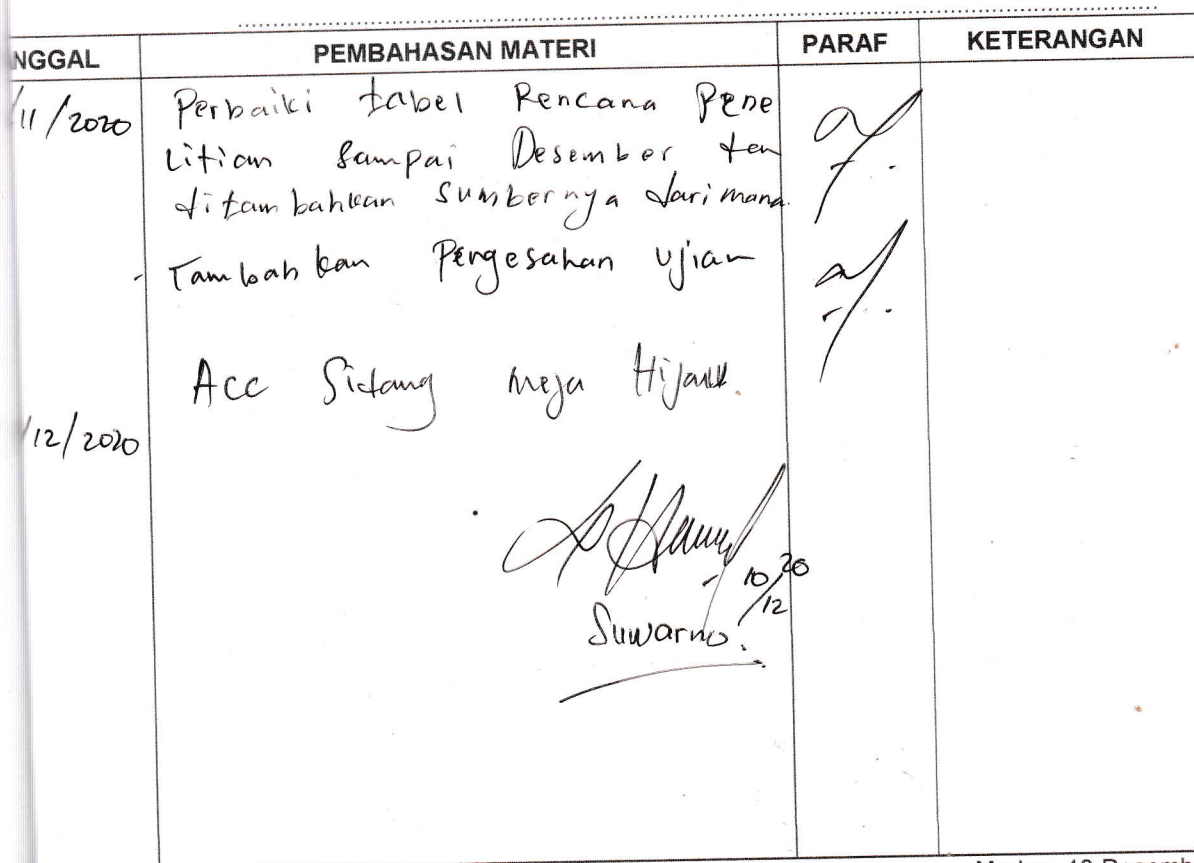 NGGAL PEMBAHASAN MATERI PARAF KETERANGAN
/11/2020 Perbaiki tabel Rencana Pene
Litian Sampai Desember
ditambahkan Sumbernya darimana
- Tambahkan Pengesahan Ujian
Acc Sidang Meja Hijau.
/12/2020
10/12 20
Suwarno.